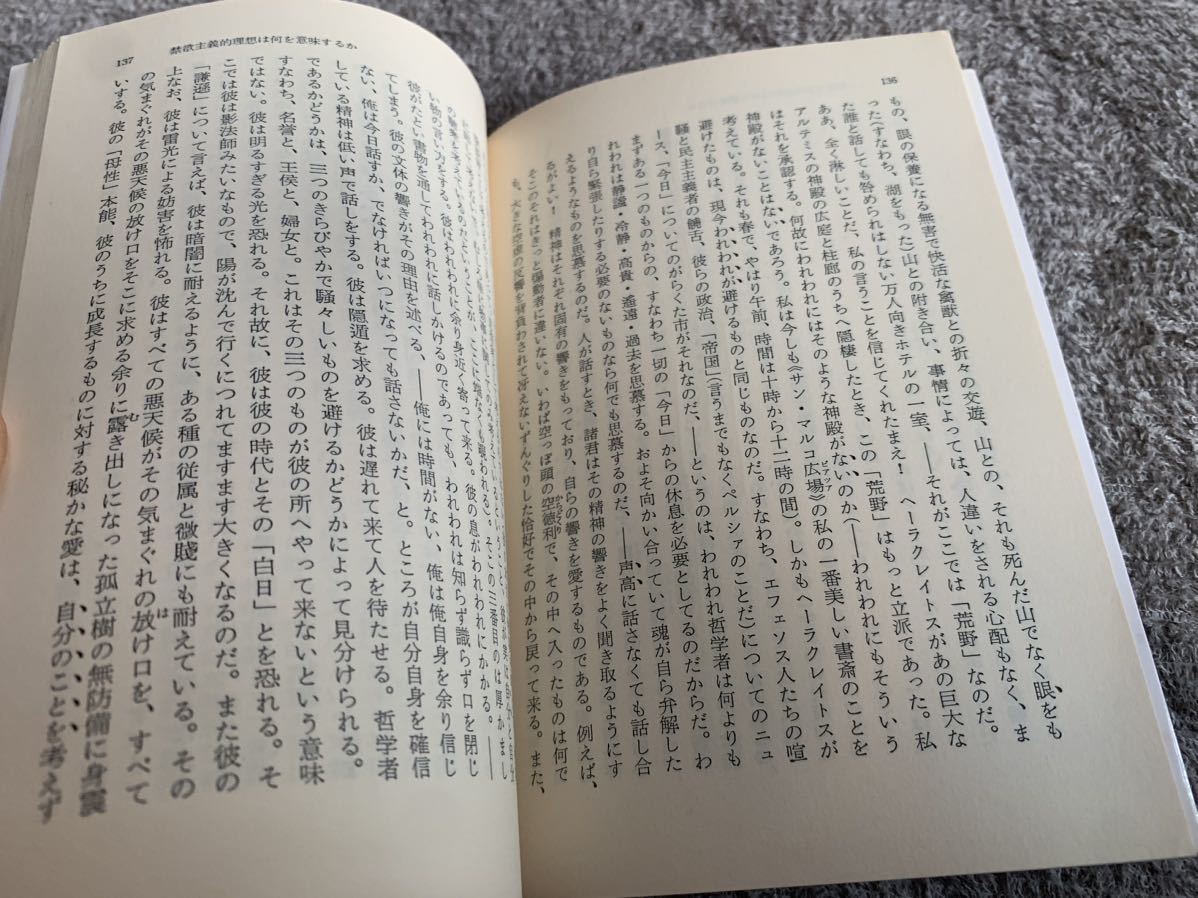 136
もの、眼の保養になる無害で快活な禽獣との折々の交遊、山との、それも死んだ山でなく眼をも
った（すなわち、湖をもった）山との附き合い、事情によっては、人違いをされる心配もなく、ま
た誰と話しても咎められはしない万人向きホテルの一室、――それがここでは「荒野」なのだ。
ああ、全く淋しいことだ、私の言うことを信じてくれたまえ！　ヘーラクレイトスがあの巨大な
アルテミスの神殿の広庭と柱廊のうちへ隠棲したとき、この「荒野」はもっと立派であった。私
はそれを承認する。何故にわれわれにはそのような神殿がないのか（――われわれにもそういう
神殿がないことはないであろう。私は今しも《サン・マルコ広場》の私の一番美しい書斎のことを
考えている。それも春で、やはり午前、時間は十時から十二時の間）。しかもヘーラクレイトスが
避けたものは、現今われわれが避けるものと同じものなのだ。すなわち、エフェソス人たちの喧
騒と民主主義者の饒舌、彼らの政治、「帝国」（言うまでもなくペルシァのことだ）についてのニュ
ース、「今日」についてのがらくた市がそれなのだ、――というのは、われわれ哲学者は何よりも
まずある一つのものからの、すなわち一切の「今日」からの休息を必要としてるのだからだ。わ
れわれは静謐・冷静・高貴・遼遠・過去を思慕する。およそ向かい合っていて魂が自ら弁解した
り自ら緊張したりする必要のないものなら何でも思慕するのだ、――声高に話さなくても話し合
えるようなものを思慕するのだ。人が話すとき、諸君はその精神の響きをよく聞き取るようにす
るがよい！　精神はそれぞれ固有の響きをもっており、自らの響きを愛するものである。例えば、
そこのそれはきっと煽動者に違いない。いわば空っぽ頭の空徳利で、その中へ入ったものは何で
も、大きな空虚の反響を背負わされて冴えないずんぐりした恰好でその中から戻って来る。また、
禁欲主義的理想は何を意味するか
137
い物の言い方をする。彼はわれわれに余り身近く寄って来る。彼の息がわれわれにかかる。――
彼がたとい書物を通してわれわれに話しかけるのであっても、われわれは知らず識らず口を閉じ
てしまう。彼の文体の響きがその理由を述べる、――俺には時間がない、俺は俺自身を余り信じ
ない、俺は今日話すか、でなければいつになっても話さないかだ、と。ところが自分自身を確信
している精神は低い声で話しをする。彼は隠遁を求める。彼は遅れて来て人を待たせる。哲学者
であるかどうかは、三つのきらびやかで騒々しいものを避けるかどうかによって見分けられる。
すなわち、名誉と、王侯と、婦女と。これはその三つのものが彼の所へやって来ないという意味
ではない。彼は明るすぎる光を恐れる。それ故に、彼は彼の時代とその「白日」とを恐れる。そ
こでは彼は影法師みたいなもので、陽が沈んで行くにつれてますます大きくなるのだ。また彼の
「謙遜」について言えば、彼は暗闇に耐えるように、ある種の従属と微賤にも耐えている。その
上なお、彼は雷光による妨害を怖れる。彼はすべての悪天候がその気まぐれの放け口を、すべて
の気まぐれがその悪天候の放け口をそこに求める余りに露き出しになった孤立樹の無防備に身震
いする。彼の「母性」本能、彼のうちに成長するものに対する秘かな愛は、自分のことを考えず